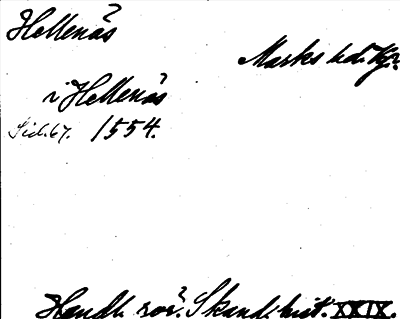 Hellenäs
Marks hd. Kr.
i Hellenäs
Sid. 67. 1554.
Handl. rör. Skand. hist. XXIX.